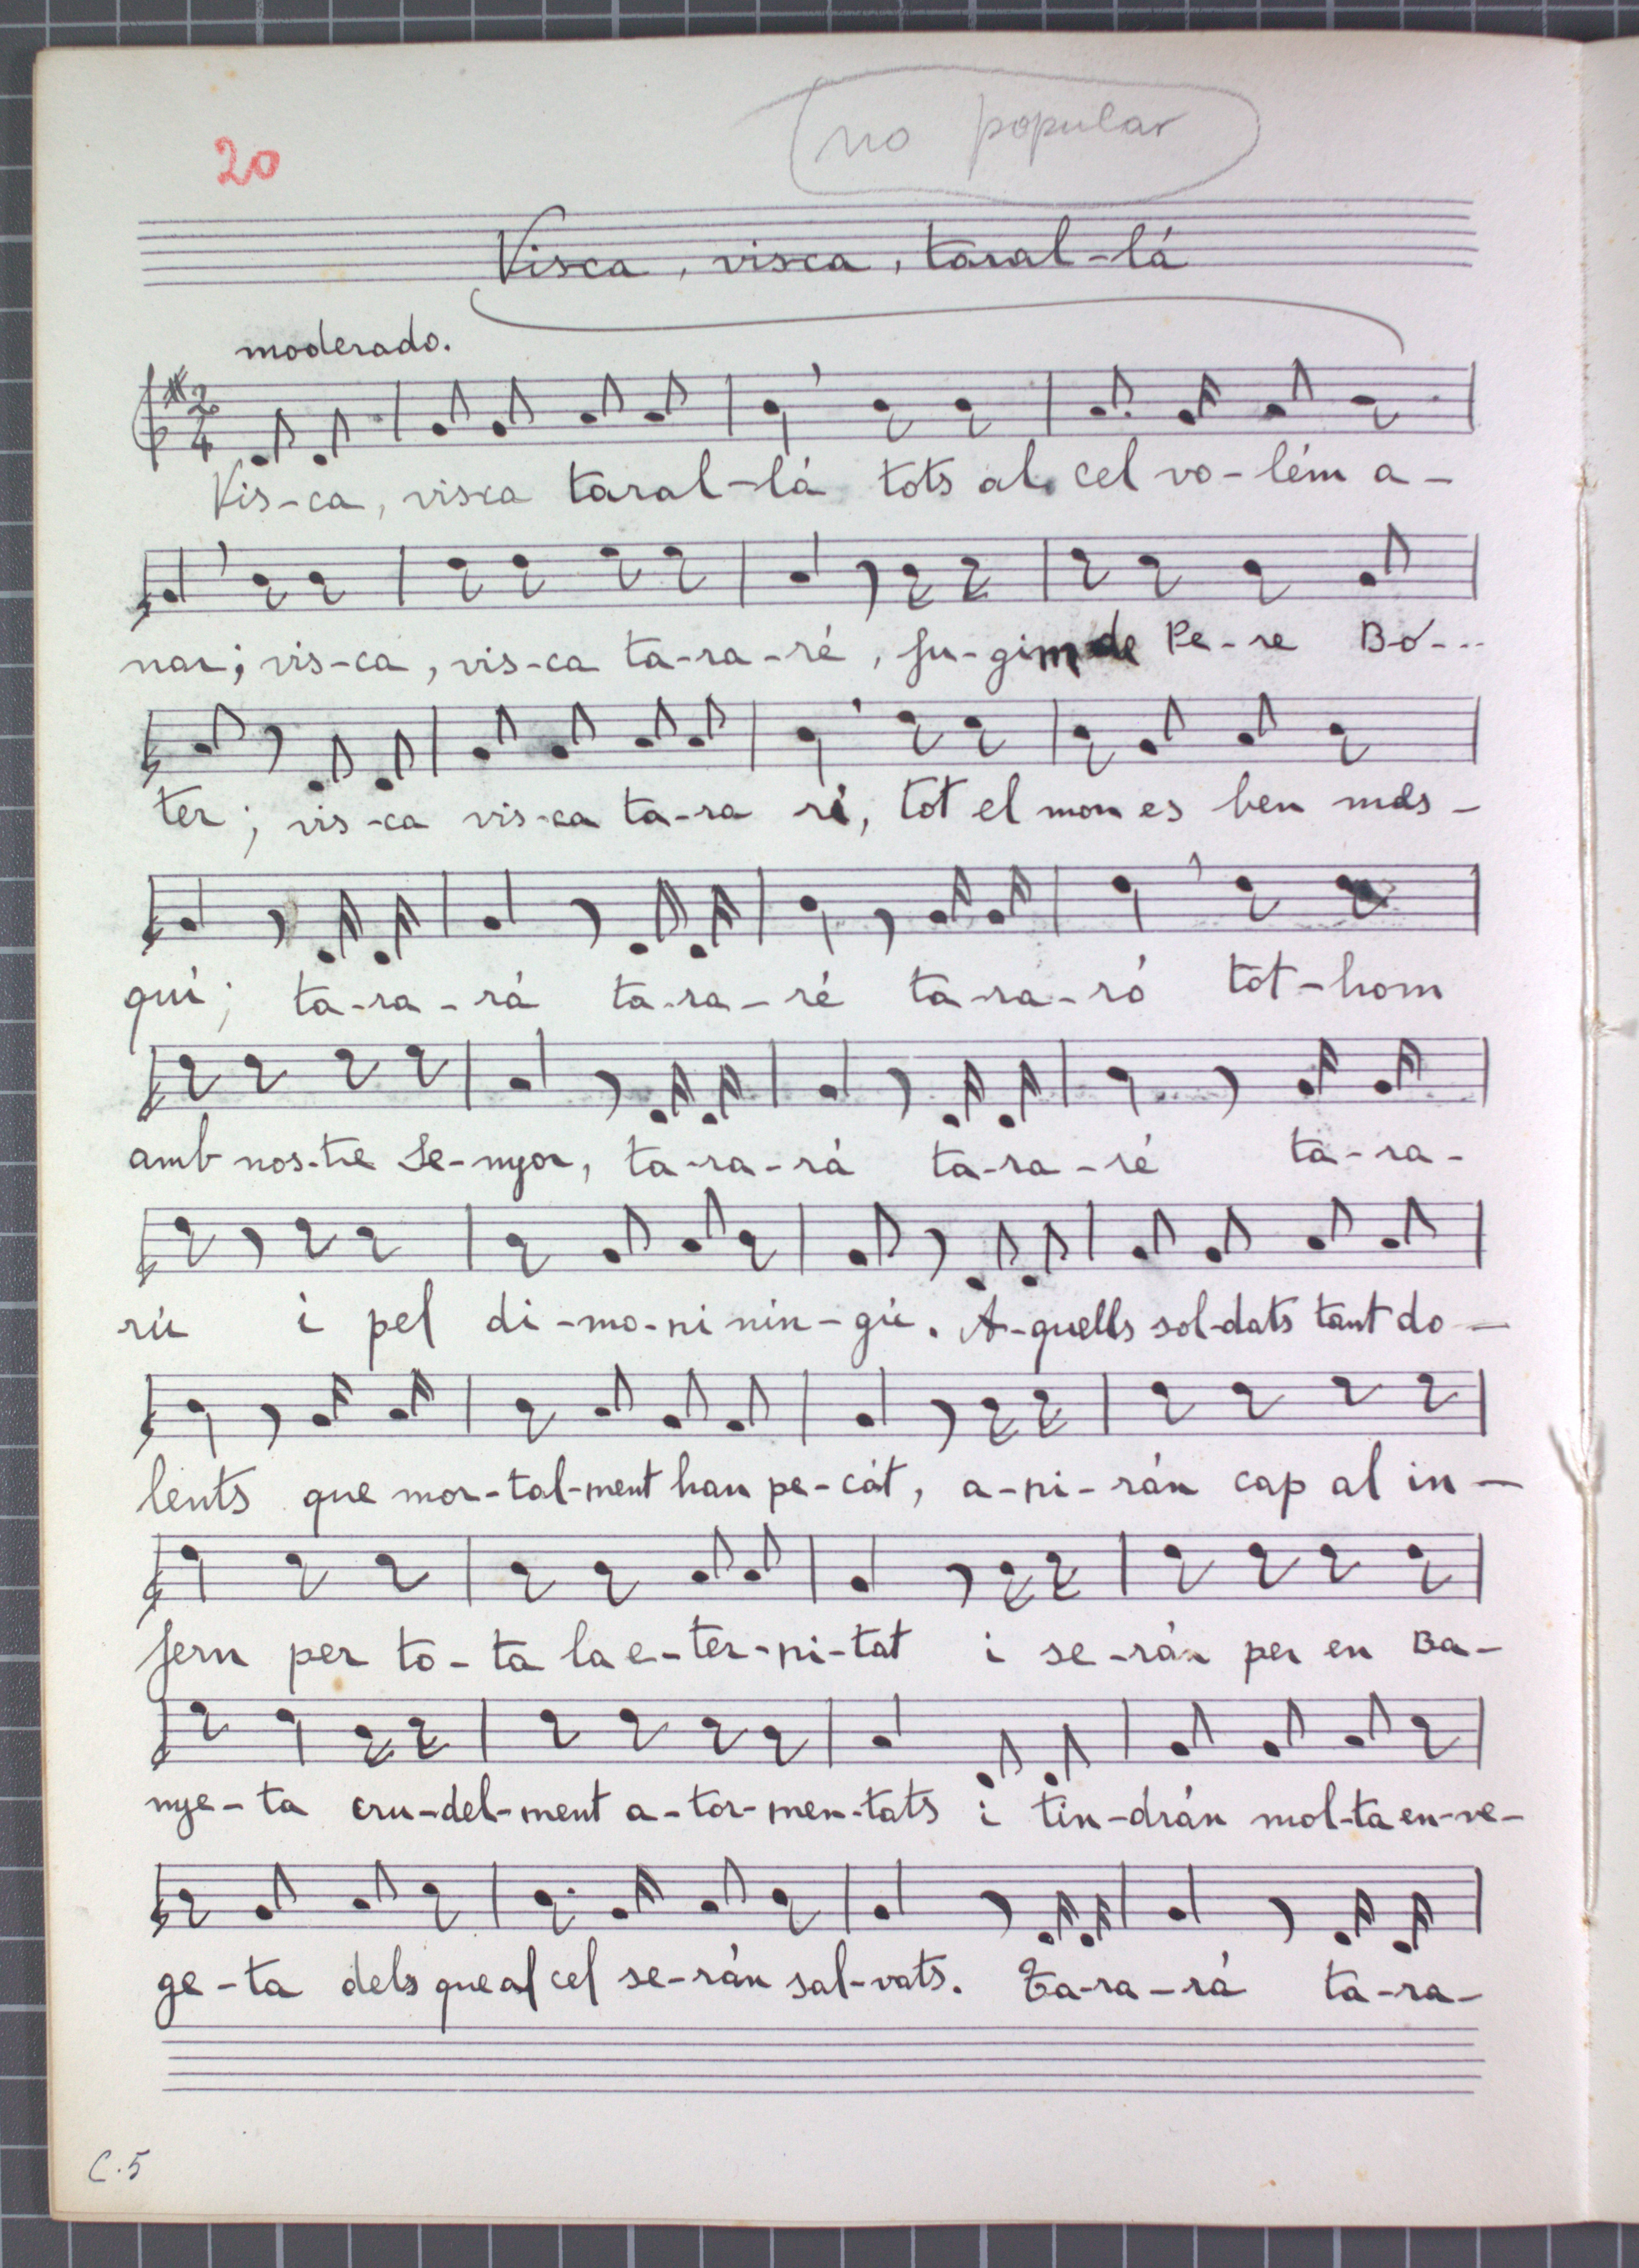 no popular
20
Visca, visca, taral-lá
moderado.
2
4
Vis-ca, visca taral-lá tots al cel vo-lém a-
nar; vis-ca, vis-ca ta-ra-ré, fu-gim de Pe-re Bo-...
ter; vis-ca vis-ca ta-ra rí, tot el mon es ben mes-
quí; ta-ra-rá ta-ra-ré ta-ra-ró tot-hom
amb nos-tre Se-nyor, ta-ra-rá ta-ra-ré ta-ra-
rú i pel di-mo-ni nin-gú. A-quells sol-dats tant do-
lents que mor-tal-ment han pe-cát, a-ni-rán cap al in-
fern per to-ta la e-ter-ni-tat i se-rán per en Ba-
nye-ta cru-del-ment a-tor-men-tats i tin-drán mol-ta en-ve-
ge-ta dels que al cel se-rán sal-vats. Ta-ra-rá ta-ra-
C.5